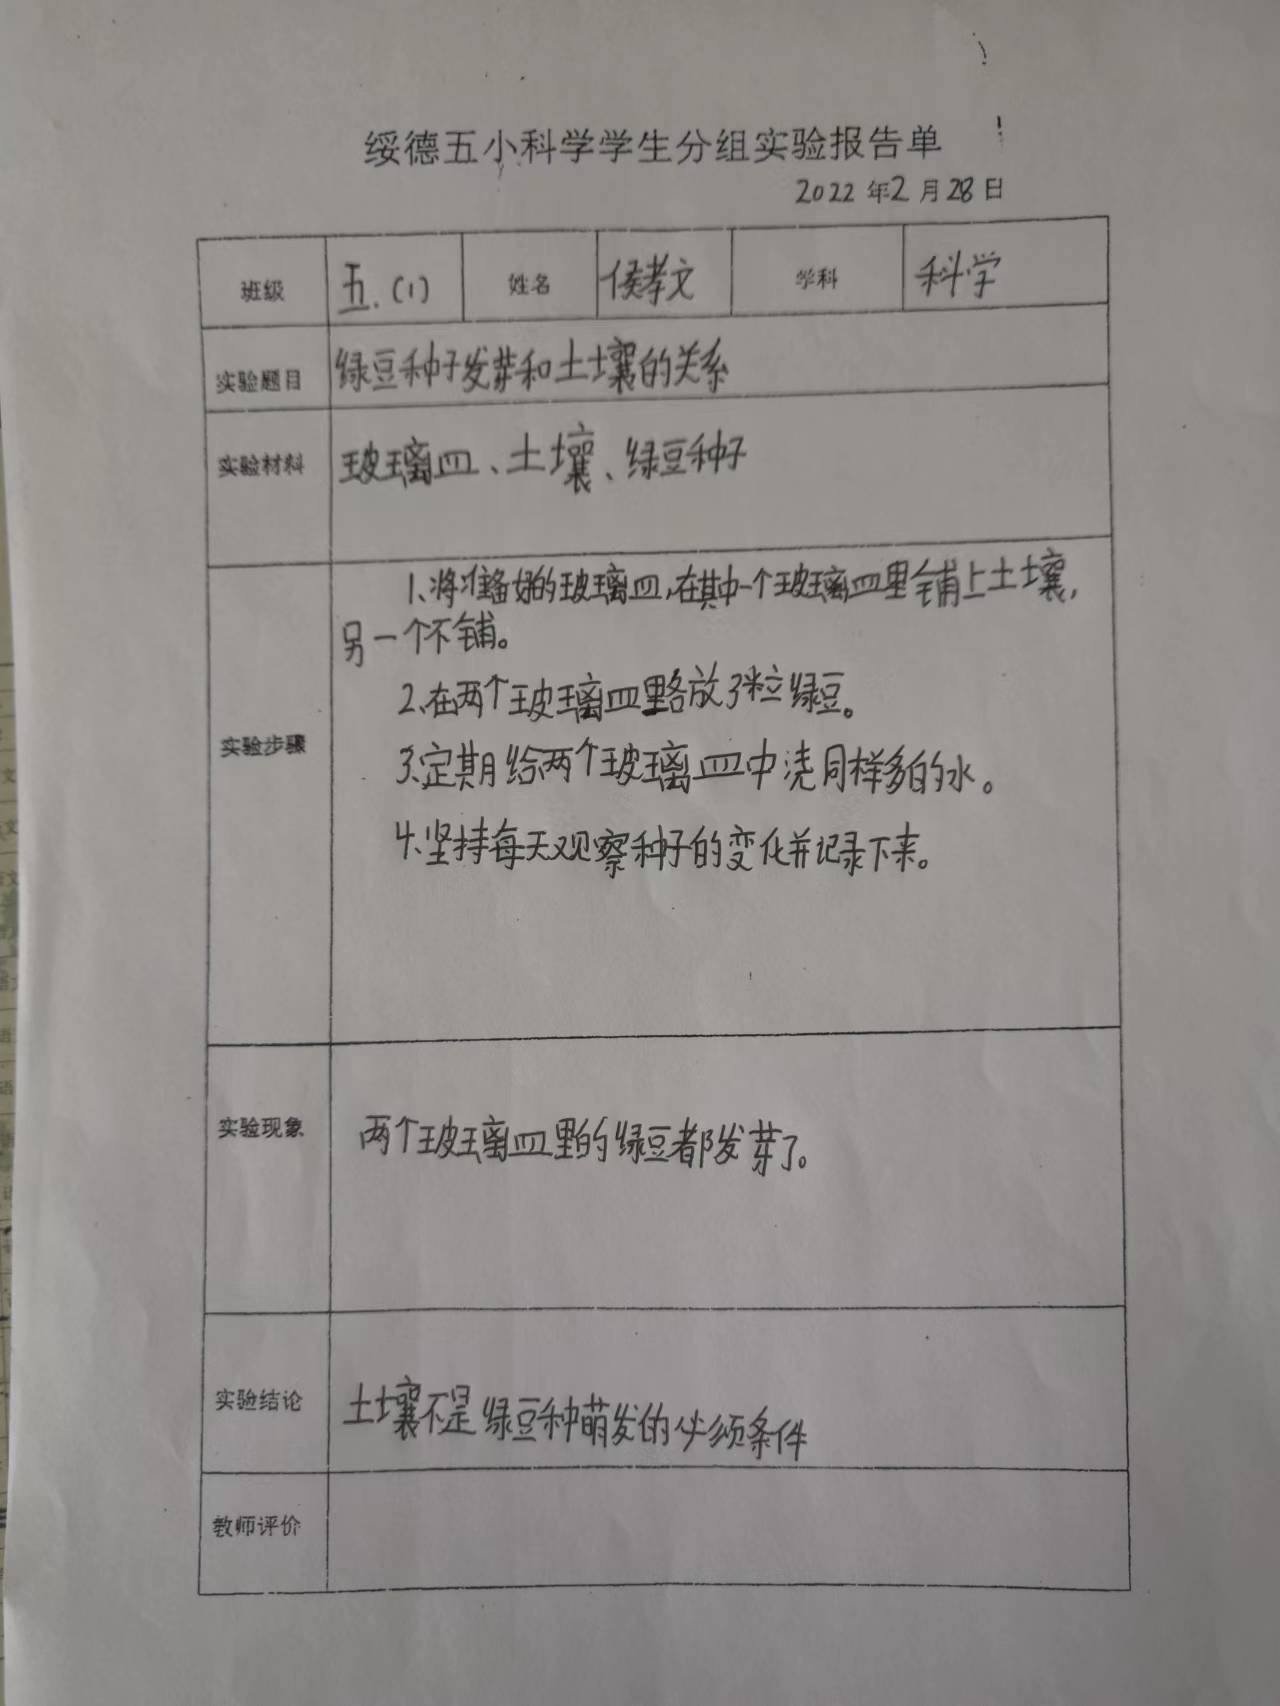 绥德五小科学学生分组实验报告单
2022年2月28日
班级 五.(1) 姓名 侯孝文 学科 科学
实验题目 绿豆种子发芽和土壤的关系
实验材料 玻璃皿、土壤、绿豆种子
1、将准备好的玻璃皿,在其中一个玻璃皿里铺上土壤,
另一个不铺。
2、在两个玻璃皿里各放3粒绿豆。
实验步骤
3、定期给两个玻璃皿中浇同样多的水。
4、坚持每天观察种子的变化并记录下来。
实验现象 两个玻璃皿里的绿豆都发芽了。
实验结论 土壤不是绿豆种萌发的必须条件
教师评价